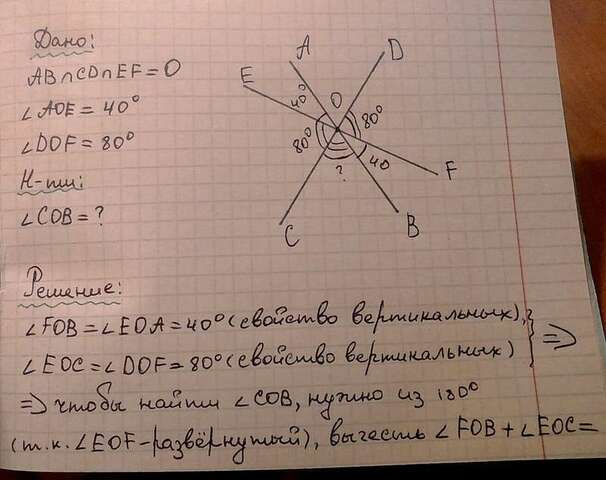 Дано:
AB∩CD∩EF=O
∠AOE=40°
∠DOF=80°
Н-ти:
∠COB=?
A
D
E
40°
O
80°
80°
40
?
F
C
B
Решение:
∠FOB=∠EOA=40° (свойство вертикальных),
∠EOC=∠DOF=80° (свойство вертикальных) } =>
=> чтобы найти ∠COB, нужно из 180°
(т.к. ∠EOF-развёрнутый), вычесть ∠FOB+∠EOC=